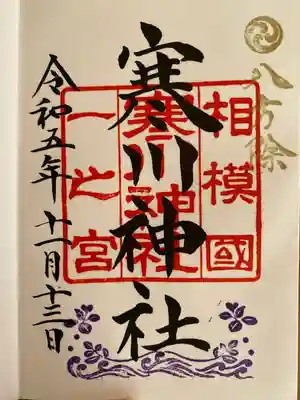 八方除
相模國
寒川神社
寒川神社
一之宮
令和五年十一月十三日